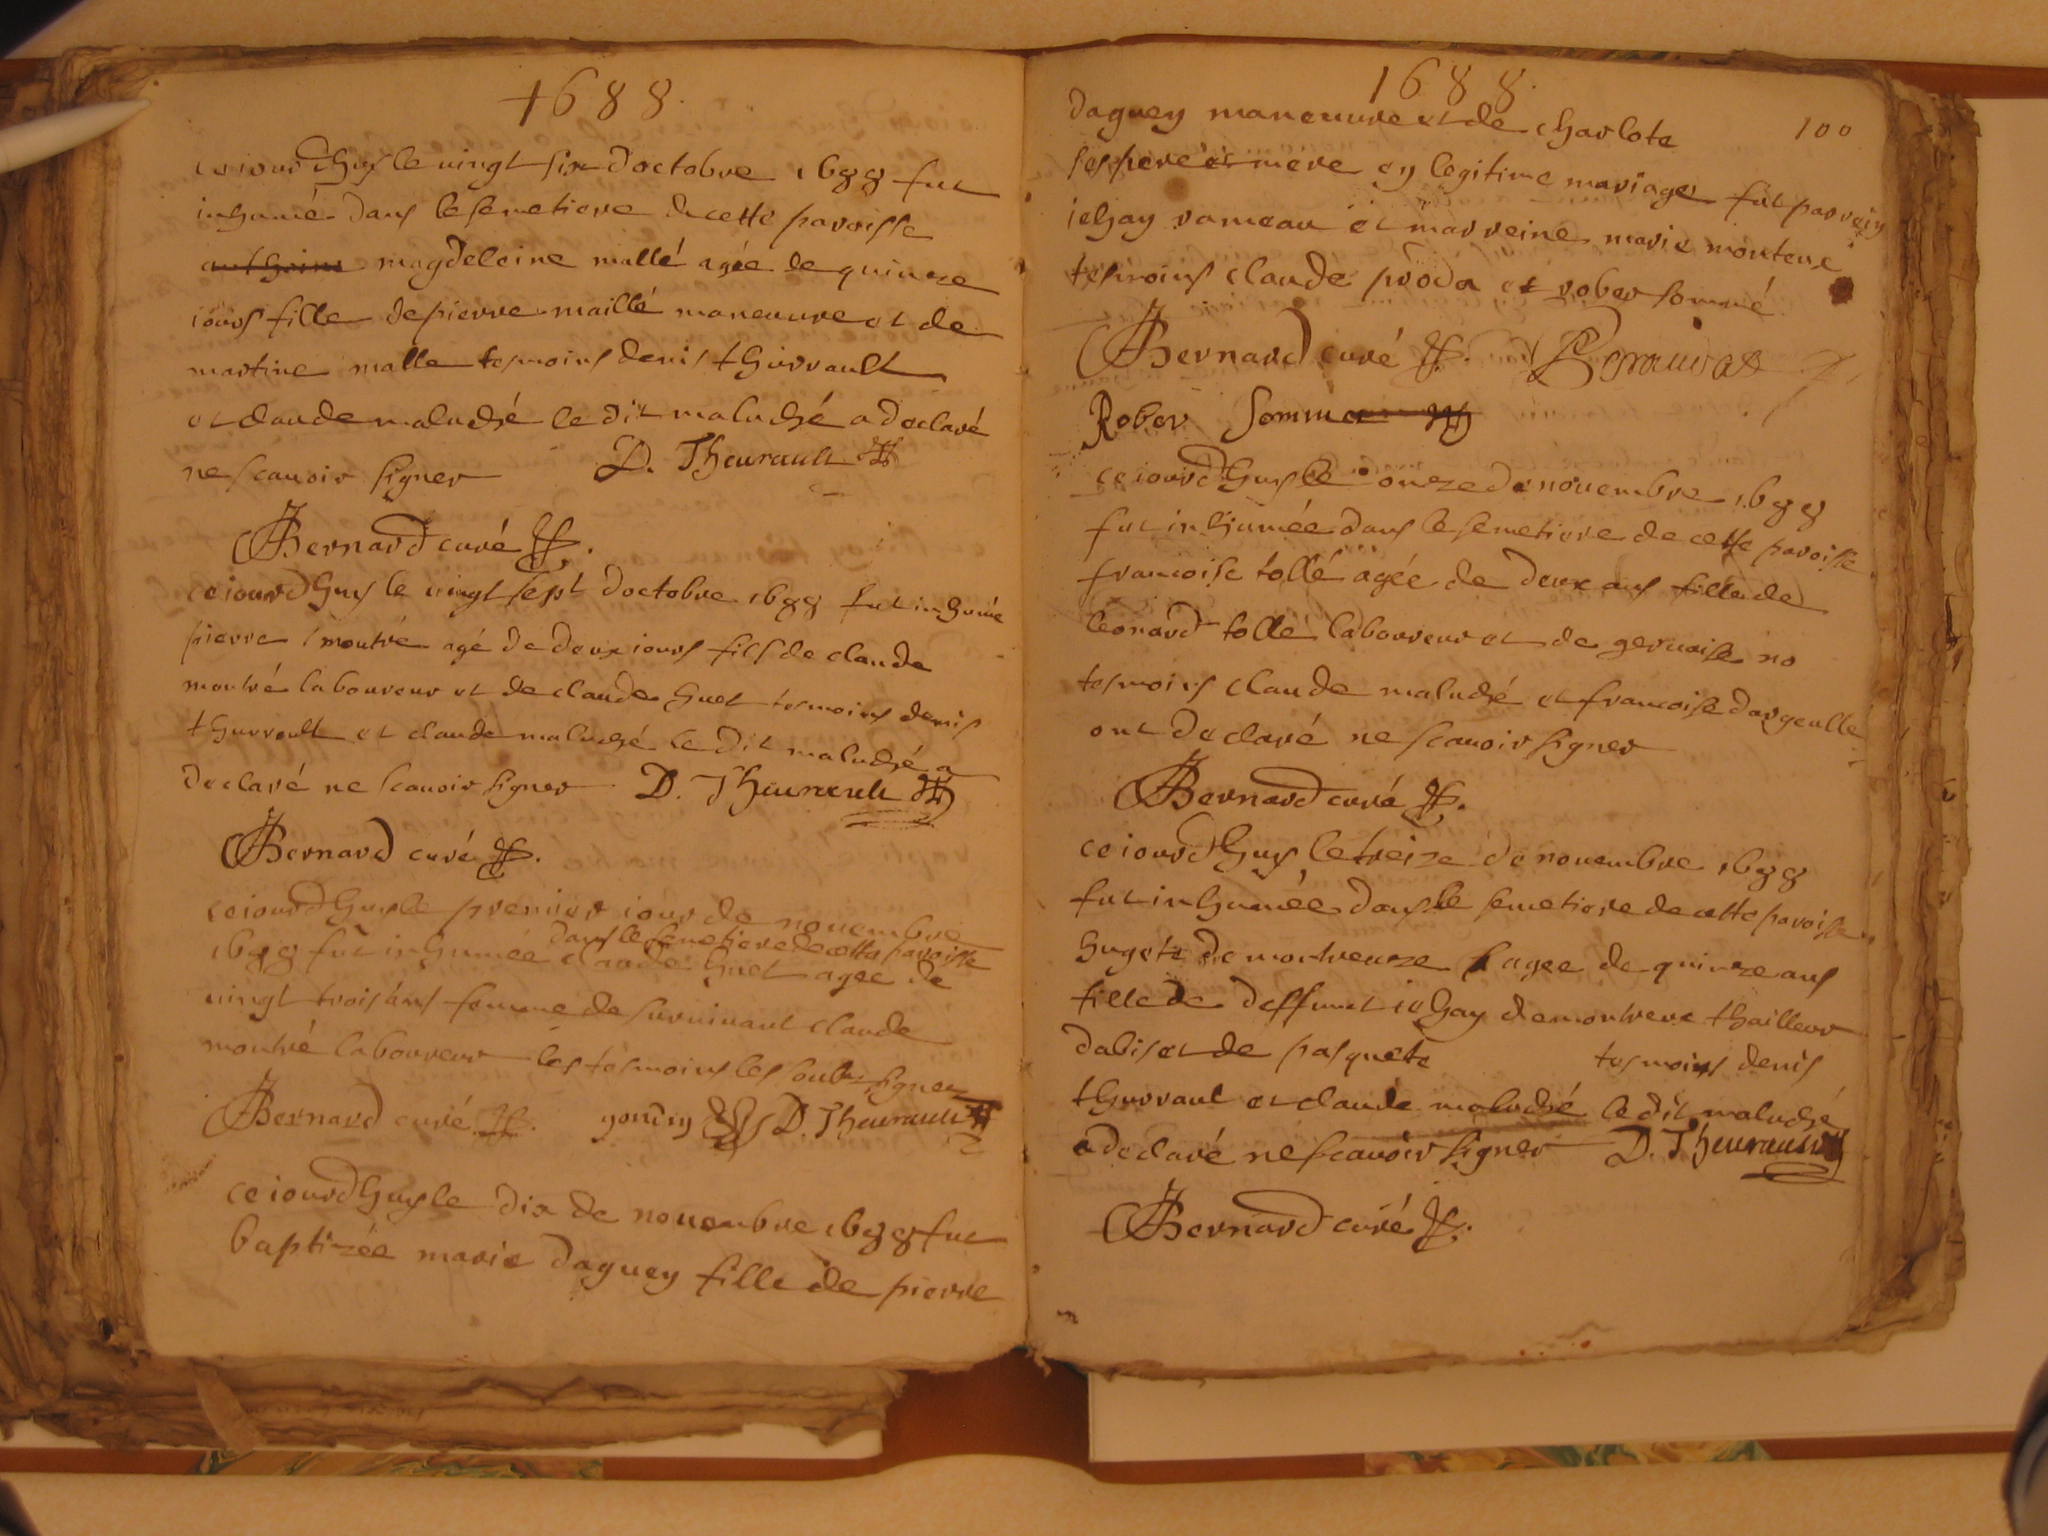 1688
ceiourdhuy le uingt six doctobre 1688 fut
inhumé dans le semetiere de cette paroisse
magdeleine mallé agée de quinze
iours fille de pierre maillé maneuure et de
martine malle tesmoins denis thurrault
et claude maluché le dit maluché a declaré
ne scauoir signer D. Theurault
Bernard curé
ceiourdhuy le uingt sept doctobre 1688 fut inhumé
pierre montré agé de deux iours fils de claude
montré laboureur et de claude huet tesmoins denis
thurrault et claude maluché le dit maluché a
declaré ne scauoir signer D. Theurault
Bernard curé
ceiourdhuy le premier iour de nouembre
dans le semetiere de cette paroisse
1688 fut inhumée claude huet agee de
uingt trois ans femme de suruiuant claude
montré laboureur les tesmoins les soubsignez
Bernard curé D. Theurault
ceiourdhuy le dix de nouembre 1688 fut
baptizée marie daguey fille de pierre
1688
100
daguey maneuure et de charlote
ses pere et mere en legitime mariage fut parrein
iehan rameau et marreine marie
tesmoins claude proda et rober sommé
Bernard curé
Rober Somme
ceiourdhuy le onze de nouembre 1688
fut inhumée dans le semetiere de cette paroisse
francoise tollé agée de deux ans fille de
leonard tollé laboureur et de geruaise no
tesmoins claude maluché et francoise dargeulle
ont declaré ne scauoir signer
Bernard curé
ceiourdhuy le treize de nouembre 1688
fut inhumée dans le semetiere de cette paroisse
hugete de agee de quinze ans
fille de deffunct iehan thailleur
dabis et de pasquete tesmoins denis
thurraut et claude maluché le dit maluché
a declaré ne scauoir signer D. Theurault
Bernard curé